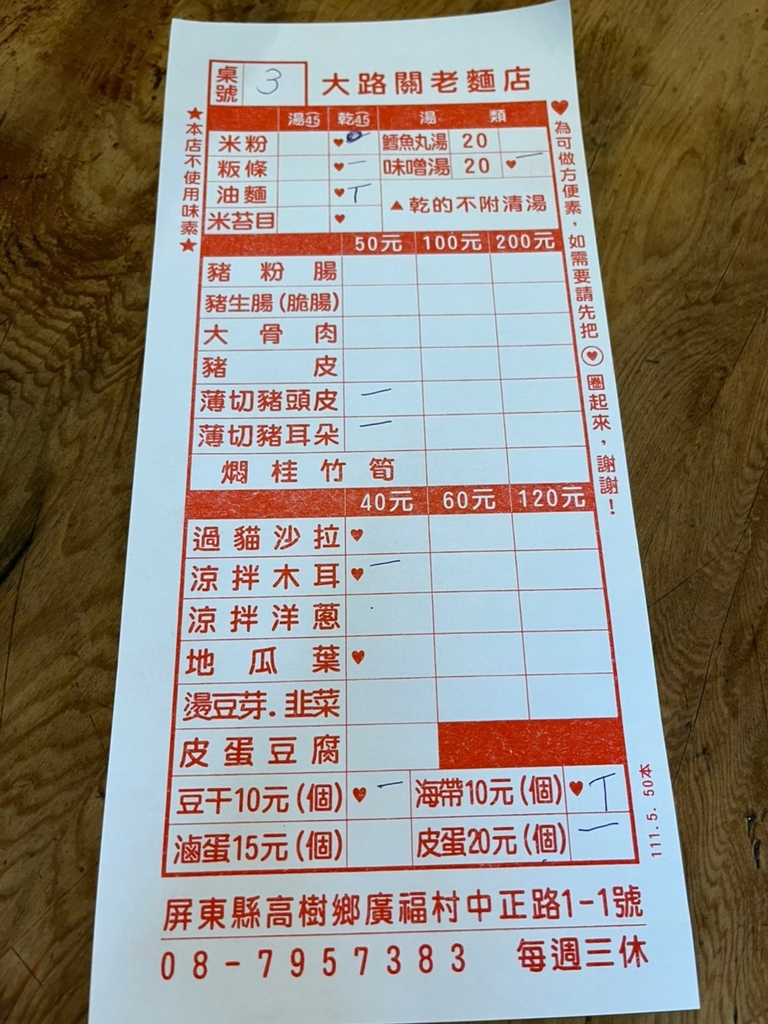 桌號 3 大路關老麵店
湯45 乾45 湯類
米粉 ♥ 鱈魚丸湯 20
粄條 ♥ 一 味噌湯 20 ♥ 一
油麵 ♥ T ▲乾的不附清湯
米苔目 ♥
50元 100元 200元
豬粉腸
豬生腸(脆腸)
大骨肉
豬皮
薄切豬頭皮 一
薄切豬耳朵 一
燜桂竹筍
40元 60元 120元
過貓沙拉 ♥
涼拌木耳 ♥ 一
涼拌洋蔥
地瓜葉 ♥
燙豆芽.韭菜
皮蛋豆腐
豆干10元(個) ♥ 一 海帶10元(個) ♥ T
滷蛋15元(個) 皮蛋20元(個) 一
★本店不使用味素★
♥為可做方便素，如需要請先把♥圈起來，謝謝！
111.5. 50本
屏東縣高樹鄉廣福村中正路1-1號
08-7957383 每週三休